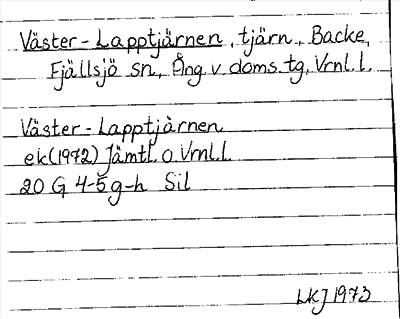 Väster-Lapptjärnen, tjärn, Backe,
Fjällsjö sn, Ång. v doms. tg, Vrnl. l.
Väster-Lapptjärnen
ek(1972) Jämtl. o Vrnl. l.
20 G 4-5 g-h Sil
LKJ 1973